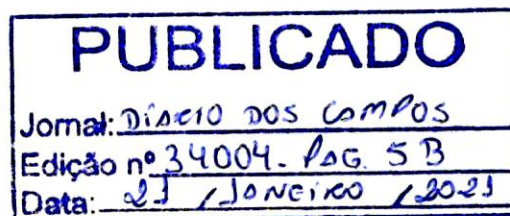 PUBLICADO
Jornal: DIÁRIO DOS CAMPOS
Edição nº 34004. PAG. 5 B
Data: 21 / JANEIRO / 2021